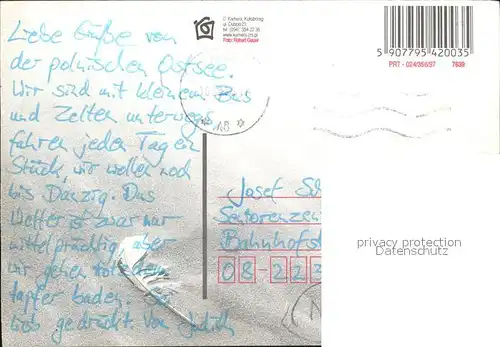 Liebe Grüße von
der polnischen Ostsee.
Wir sind mit kleinem Bus
und Zelten unterwegs
fahren jeden Tag ein
Stück, wir wollen noch
bis Danzig. Das
Wetter ist zwar nur
mittelprächtig aber
wir gehen trotzdem
tapfer baden.
lieb gedrückt. Von Judith
© Kamera, Kołobrzeg
www.kamera.zn.pl
5 907795 420035
PRT - 024/366/97 7639
18
Josef
Seniorenzen
Bahnhofst
08-223
privacy protection
Datenschutz